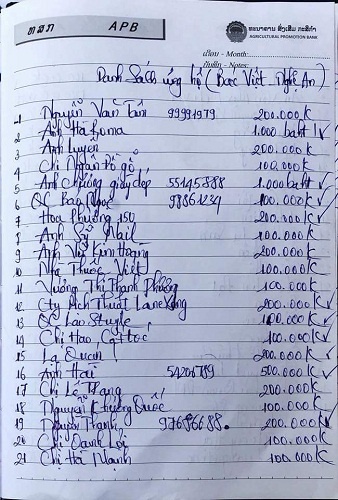 ທສກ APB
ທະນາຄານ ສົ່ງເສີມ ກະສິກຳ
AGRICULTURAL PROMOTION BANK
ເດືອນ - Month:
ບັນທຶກ - Notes:
Danh Sách ủng hộ (Bác Việt Nghệ An)
1 Nguyễn Văn Tâm 99991979 200.000K
2 Anh Hà Roma 1.000 baht ✓
3 Anh Luyện 200.000K
4 Chị Ngân Đồ gỗ 100.000K
5 Anh Chương giày dép 55145888 1.000 baht ✓
6 QC Bảo Ngọc 98861234 100.000K ✓
7 Hoa Phượng 150 200.000K ✓
8 Anh Sỹ Nail 100.000K
9 Anh Vũ Kim Hoàng 200.000K
10 Nhà Thuốc Việt 100.000K
11 Vương Thị Thanh Phương 100.000K
12 Cty Mch Thuật LaneXang 200.000K ✓
13 QC Lào Style 100.000K ✓
14 Chị Hào Cắt tóc 100.000K ✓
15 Lạ Quán 200.000K ✓
16 Anh Hải 54201789 500.000K ✓
17 Chị Lê Trang 200.000K
18 Nguyễn Khương Quốc 100.000K
19 Nguyễn Thanh 97686688. 200.000K ✓
20 Chị Oanh Lợi 100.000K
21 Chị Hà Mạnh 100.000K